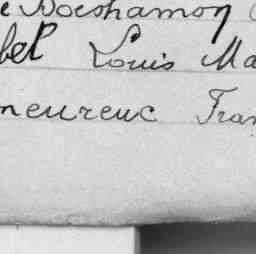 e Boeshamoy
bet Louis Ma
meureuc Fran